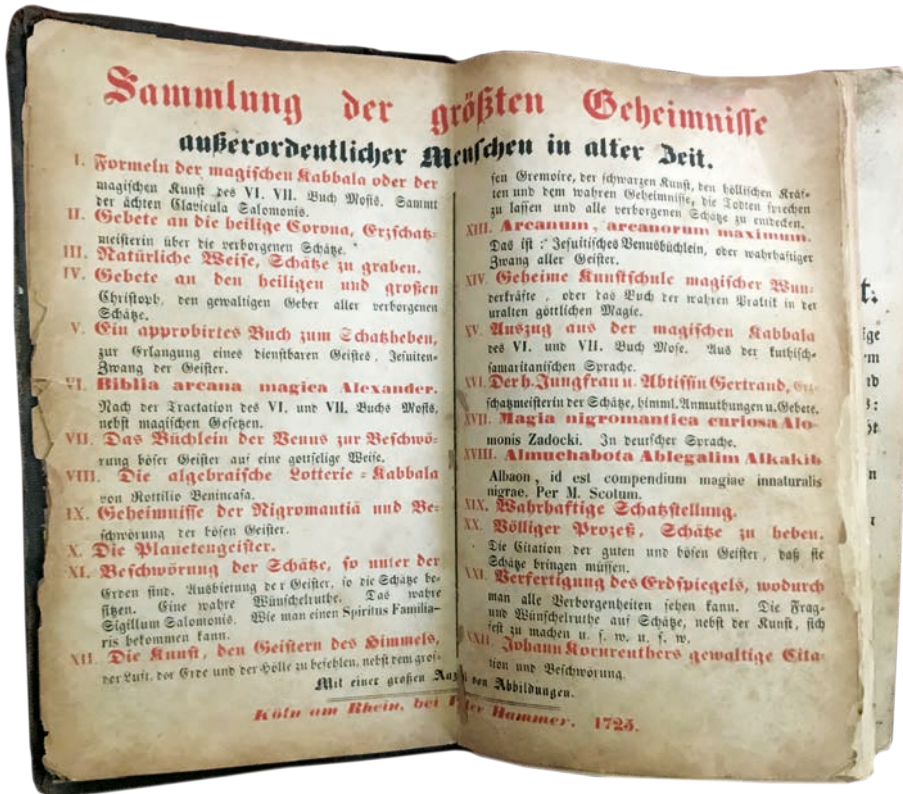 Sammlung der größten Geheimnisse
außerordentlicher Menschen in alter Zeit.
I. Formeln der magischen Kabbala oder der
magischen Kunst des VI. VII. Buch Mosis. Sammt
der ächten Clavicula Salomonis.
II. Gebete an die heilige Corona, Erzschatz-
meisterin über die verborgenen Schätze.
III. Natürliche Weise, Schätze zu graben.
IV. Gebete an den heiligen und großen
Christoph, den gewaltigen Geber aller verborgenen
Schätze.
V. Ein approbirtes Buch zum Schatzheben,
zur Erlangung eines dienstbaren Geistes, Jesuiten-
Zwang der Geister.
VI. Biblia arcana magica Alexander.
Nach der Tractation des VI. und VII. Buchs Mosis,
nebst magischen Gesetzen.
VII. Das Büchlein der Venus zur Beschwö-
rung böser Geister auf eine gottselige Weise.
VIII. Die algebraische Lotterie-Kabbala
von Rottilio Benincasa.
IX. Geheimnisse der Nigromantiä und Be-
schwörung der bösen Geister.
X. Die Planetengeister.
XI. Beschwörung der Schätze, so unter der
Erden sind. Ausbietung der Geister, so die Schätze be-
sitzen. Eine wahre Wünschelruthe. Das wahre
Sigillum Salomonis. Wie man einen Spiritus Familia-
ris bekommen kann.
XII. Die Kunst, den Geistern des Himmels,
der Luft, der Erde und der Hölle zu befehlen, nebst dem gros-
sen Gremoire, der schwarzen Kunst, den höllischen Kräf-
ten und dem wahren Geheimnisse, die Todten sprechen
zu lassen und alle verborgenen Schätze zu entdecken.
XIII. Arcanum, arcanorum maximum.
Das ist: Jesuitisches Venusbüchlein, oder wahrhaftiger
Zwang aller Geister.
XIV. Geheime Kunstschule magischer Wun-
derkräfte, oder das Buch der wahren Praktik in der
uralten göttlichen Magie.
XV. Auszug aus der magischen Kabbala
des VI. und VII. Buch Mose. Aus der kuthisch-
samaritanischen Sprache.
XVI. Der h. Jungfrau u. Abtissin Gertrand, Erz-
schatzmeisterin der Schätze, himml. Anmuthungen u. Gebete.
XVII. Magia nigromantica curiosa Alo-
monis Zadocki. In deutscher Sprache.
XVIII. Almuchabota Ablegalim Alkakib
Albaon, id est compendium magiae innaturalis
nigrae. Per M. Scotum.
XIX. Wahrhaftige Schatzstellung.
XX. Völliger Prozeß, Schätze zu heben.
Die Citation der guten und bösen Geister, daß sie
Schätze bringen müssen.
XXI. Verfertigung des Erdspiegels, wodurch
man alle Verborgenheiten sehen kann. Die Frag-
und Wünschelruthe auf Schätze, nebst der Kunst, sich
fest zu machen u. s. w. u. s. w.
XXII. Johann Kornreuthers gewaltige Cita-
tion und Beschwörung.
Mit einer großen von Abbildungen.
Köln am Rhein, bei Hammer. 1725.